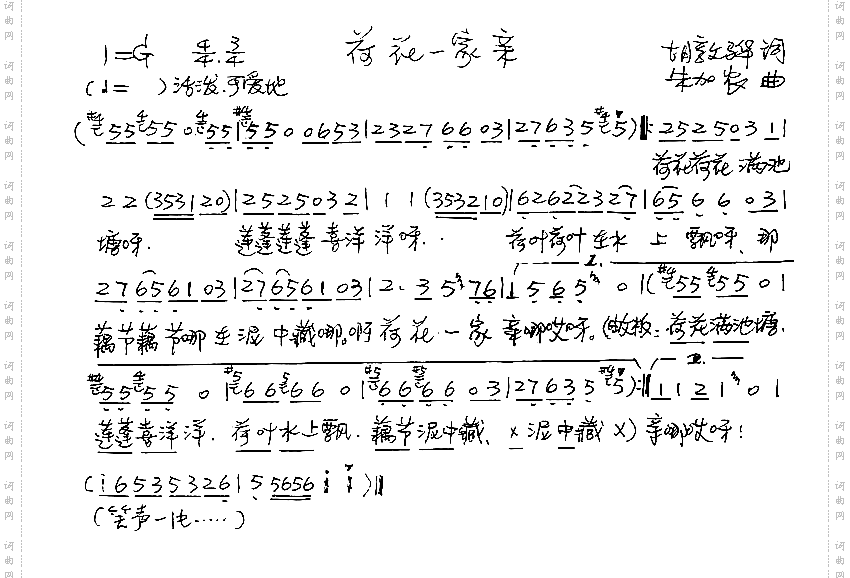 荷花一家亲
1=G 4/4 3/4
胡敦骅 词
(♩= )活泼.可爱地
朱加农 曲
(#4/5 55 #4/5 55 0 #4/5 55|#4/5 55 0 0653|2327 66 03|27635 #4/5 5)‖: 25250 31|
荷花荷花 满池
22(353120)|2525032|11(353210)|62622327|6566 03|
塘呀. 莲蓬莲蓬 喜洋洋呀.. 荷叶荷叶 在水上飘呀、那
I.
276561 03|276561 03|2. 35 76|1 565 0|(#4/5 55 #4/5 55 0|
藕节藕节哪 在泥中藏哪.啊荷花一家亲哪哎呀。(敲板: 荷花满池塘.
II.
#4/5 55 #4/5 55 0|#5 66 #5 66 0|#5 66 #5 66 03|27635 #4/5 5):‖1121 0|
莲蓬喜洋洋. 荷叶水上飘. 藕节泥中藏、×泥中藏×)亲哪哎呀!
(i 6535326|55 5656 i i)‖
(笑声一片……)
词曲网